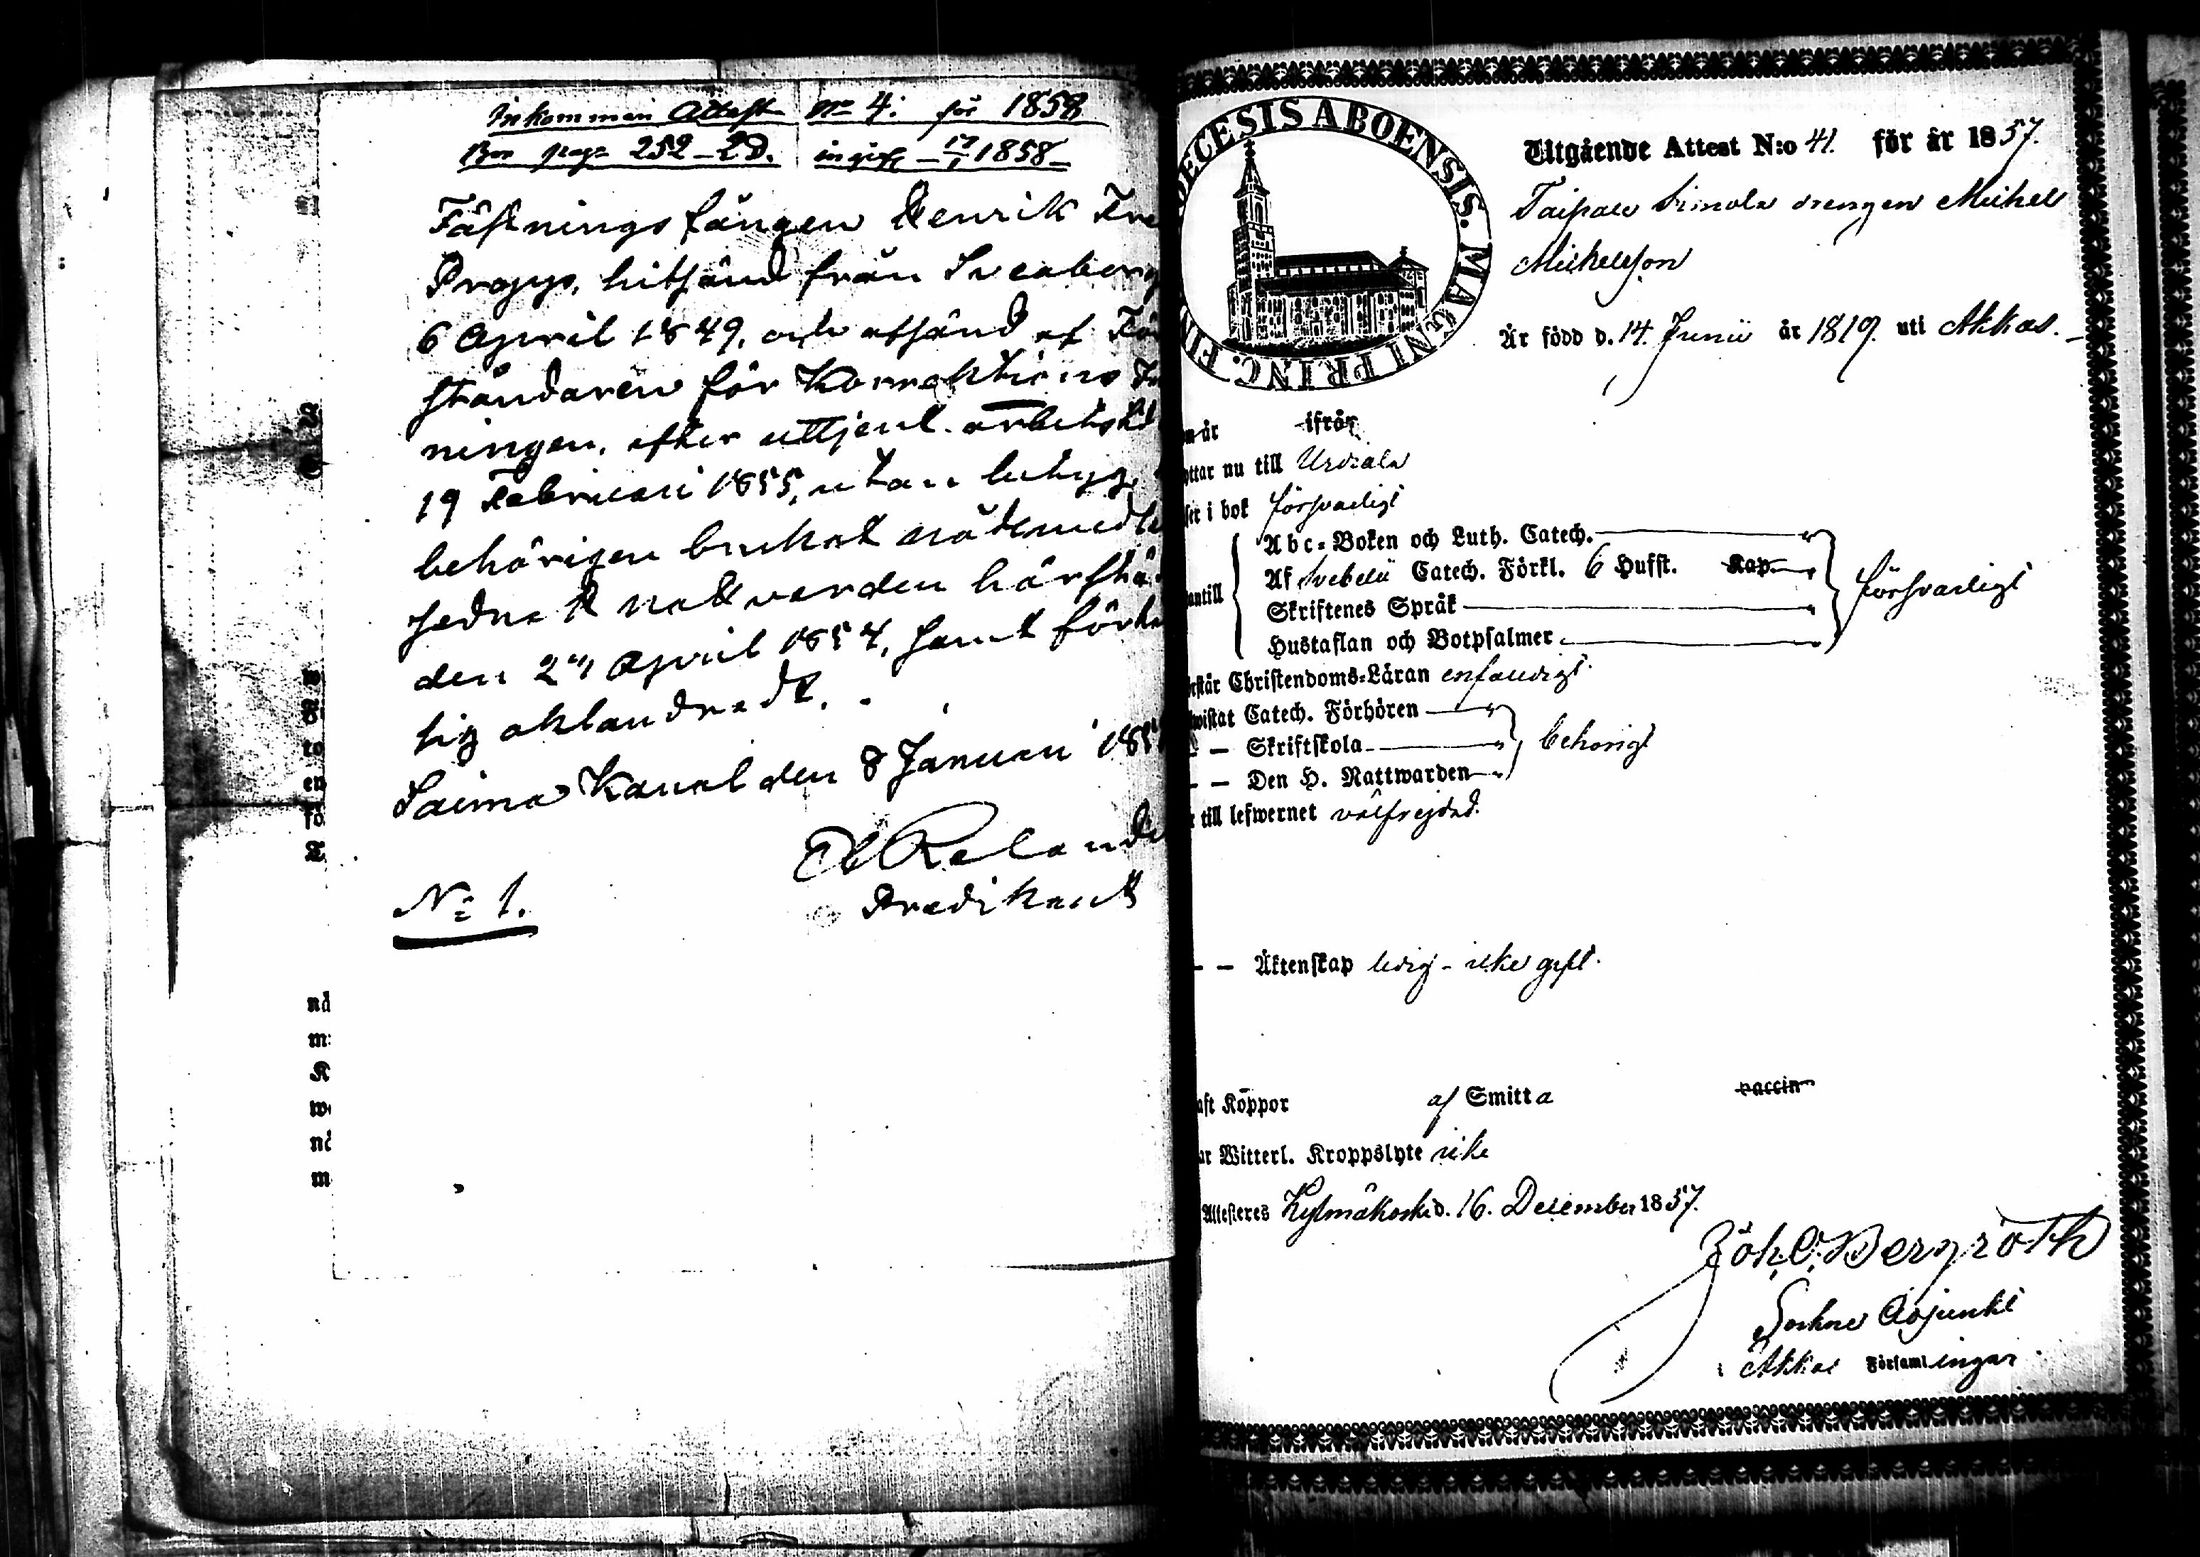 Inkommen Attest No 4. för 1858
Bor pag. 252 – 2D. ingift – 17/1 1858 –
Fästnings fången Henrik Fre
Propps, hitsänd från Sveaborg
6 April 1849, och afsänd af Fö
ståndaren för Korrektions In
ningen, efter uttjent arbetstid
19 Februari 1855, utan betyg,
behörigen brukat nådemedle
sednast nattvarden härstä
den 24 April 1857, samt förhå
lig oklandradt.
Saima Kanal den 8 Januari 185
Relande
Predikant
No 1.
nå
m
K
w
nå
m
DIOECESIS ABOENSIS. MAGNI PRINC. FIN
Utgående Attest N:o 41. för år 1857.
Taipale Simola drengen Michel
Michelsson
Är född d. 14. Junii år 1819. uti Akkas.
m år ifrån
ottar nu till Urdiala
ser i bok försvarligt
Abc-Boken och Luth. Catech.
Af Svebelii Catech. Förkl. 6 Hufst. Kap.
antill Skriftenes Språk försvarligt
Hustaflan och Botpsalmer
rstår Christendoms-Läran enfaldigt.
wistat Catech. Förhören
– – Skriftskola behörigt
– – Den H. Nattwarden
r till lefwernet välfrejdad.
– – Äktenskap ledig – icke gift.
aft Koppor af Smitta vaccin
ar Witterl. Kroppslyte icke
Attesteres Kylmäkoski d. 16. December 1857.
Joh. C. Bergroth
Sockne Adjunkt
i Akkas Församlingar.